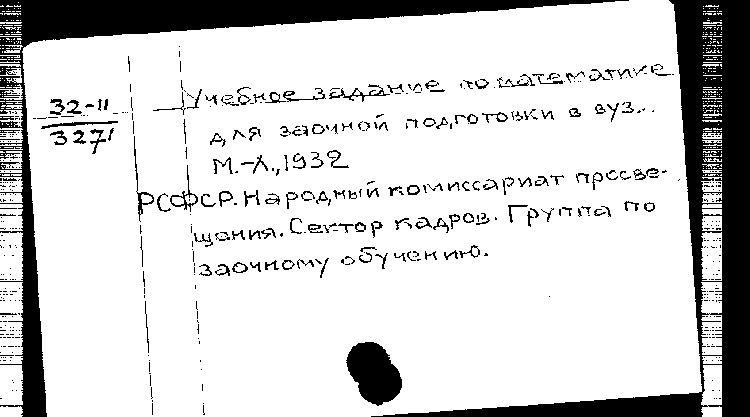 32-11
3271
Учебное задание по математике
для заочной подготовки в вуз...
М.-Л., 1932
РСФСР. Народный комиссариат просве-
щения. Сектор кадров. Группа по
заочному обучению.